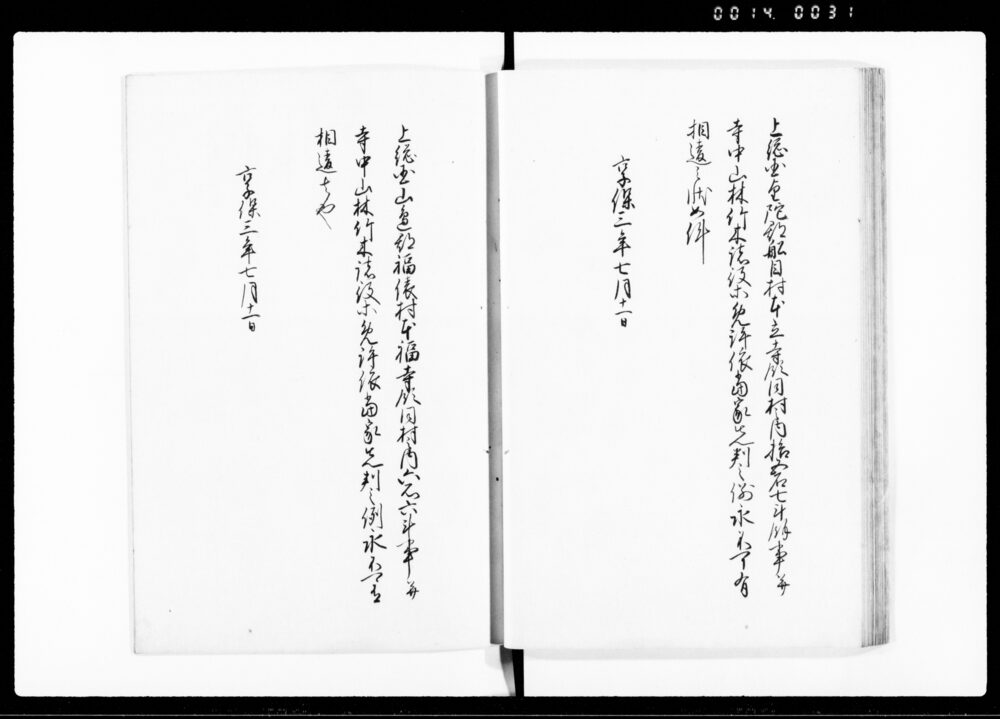 0014 0031
上総国望陀郡船目村本立寺領同村内拾石七斗余事并
寺中山林竹木諸役等免許依当家先判之例永不可有
相違之状如件
享保三年七月十一日
上総国山辺郡福俵村本福寺領同村内六石六斗事并
寺中山林竹木諸役等免許依当家先判之例永不可有
相違者也
享保三年七月十一日